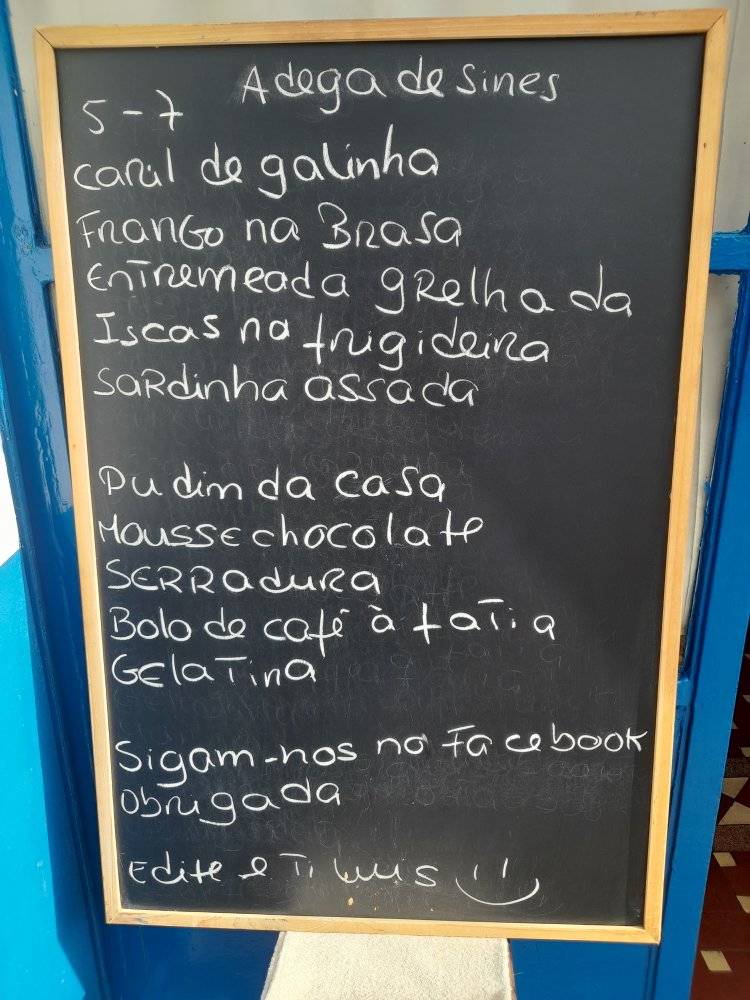 Adega de Sines
5-7
Caril de galinha
Frango na Brasa
Entremeada grelha da
Iscas na frigideira
Sardinha assada
Pudim da casa
Mousse chocolate
Serradura
Bolo de café à fatia
Gelatina
Sigam-nos no Facebook
Obrigada
Edite e Ti Luis